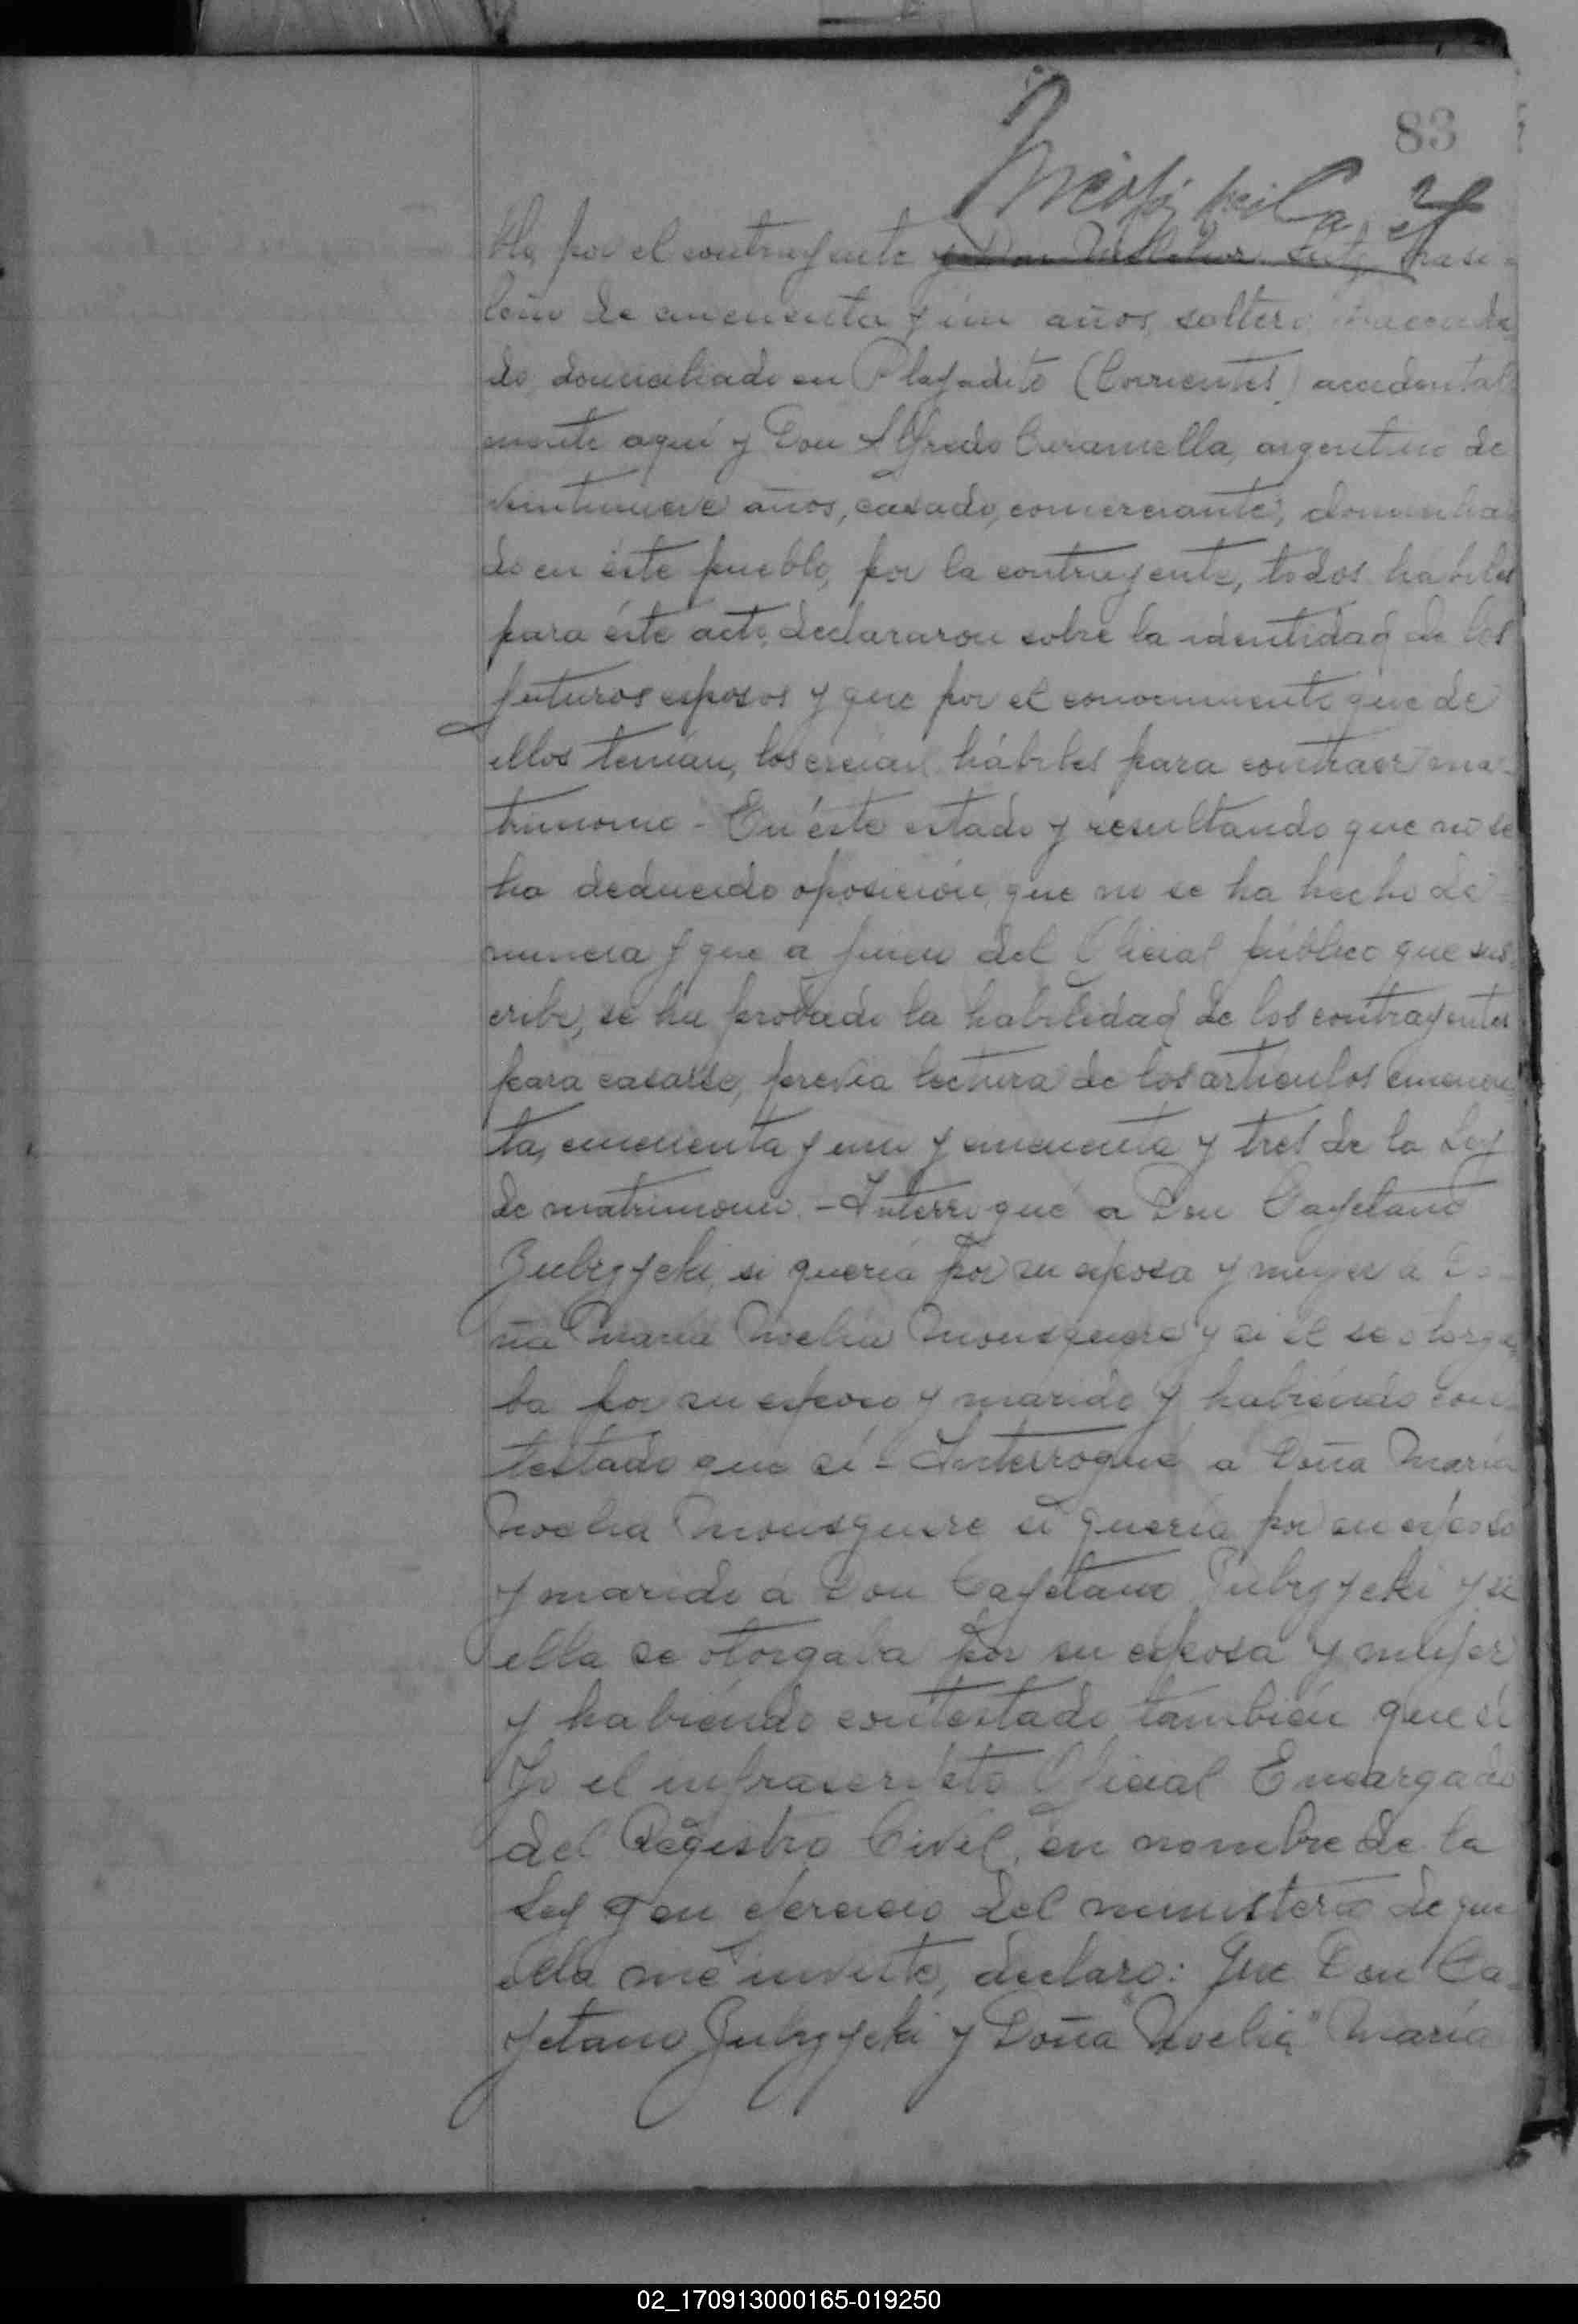 83
blo, por el contrayente y Don Melchor brasi-
leño de cincuenta y un años, soltero, hacenda
do, domiciliado en Playadito (Corrientes) accidental
mente aquí y Don Alfredo Caramella, argentino de
veintinueve años, casado, comerciante, domicilia
do en éste pueblo, por la contrayente, todos hábiles
para éste acto, declararon sobre la identidad de los
futuros esposos y que por el conocimiento que de
ellos tenían, los creían hábiles para contraer ma-
trimonio - En éste estado y resultando que no se
ha deducido oposición, que no se ha hecho de-
nuncia y que a juicio del Oficial público que sus
cribe, se ha probado la habilidad de los contrayentes
para casarse, previa lectura de los artículos cincuen
ta, cincuenta y uno y cincuenta y tres de la Ley
de matrimonio. - Interrogué a Don Cayetano
Zubrzycki, si quería por su esposa y mujer á Do-
ña María Noelia Mousquere y si él se otorga
ba por su esposo y marido y habiéndo con
testado que sí - Interrogué a Doña María
Noelia Mousquere si quería por su esposo
y marido á Don Cayetano Zubrzycki y si
ella se otorgaba por su esposa y mujer
y habiéndo contestado también que sí
Yo el infrascripto Oficial Encargado
del Registro Civil, en nombre de la
Ley y en ejercicio del ministerio de que
ella me inviste, declaro: Que Don Ca-
yetano Zubrzycki y Doña "Noelia" María
02_170913000165-019250